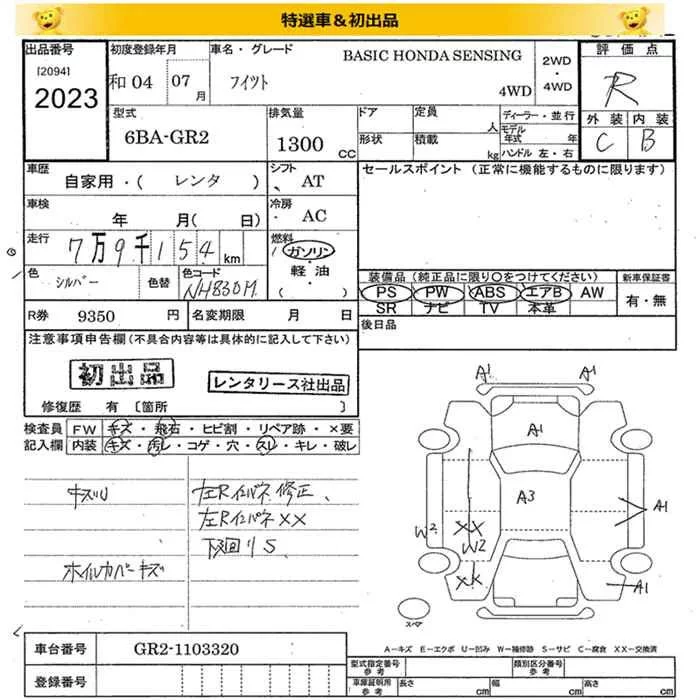 特選車&初出品
出品番号
[2094]
2023
初度登録年月
和04 07月
車名・グレード
BASIC HONDA SENSING
フィット
4WD
2WD
・
4WD
評価点
R
外装 内装
C B
型式
6BA-GR2
排気量
1300 CC
ドア
定員 人
形状
積載 kg
ディーラー・並行
モデル年式 年
ハンドル 左・右
車歴
自家用・( レンタ )
シフト
AT
セールスポイント (正常に機能するものに限ります)
車検
年 月( 日)
冷房
AC
走行
7万9千154 km
燃料
ガソリン
・
軽・油
( )
色
シルバー
色替
色コード
NH830M
装備品 (純正品に限り○をつけてください)
PS PW ABS エアB AW
SR ナビ TV 本革
新車保証書
有・無
R券 9350 円
名変期限 月 日
後日品
注意事項申告欄(不具合内容等は具体的に記入して下さい)
初出品
レンタリース社出品
修復歴 有 [箇所 ]
検査員 FW キズ・飛石・ヒビ割・リペア跡・×要
記入欄 内装 キズ・汚レ・コゲ・穴・スレ・キレ・破レ
キズU
左Rインパネ修正、
左RインパネXX
下回りS、
ホイルカバーキズ
A1 A1
A1
A3
A1
W2
XX
W2
XX
A1
スペア
A-キズ E-エクボ U-凹み W-補修跡 S-サビ C-腐食 XX-交換済
車台番号 GR2-1103320
登録番号
型式指定番号
参考
類別区分番号
参考
車庫証明用
参考
長さ cm 幅 cm 高さ cm